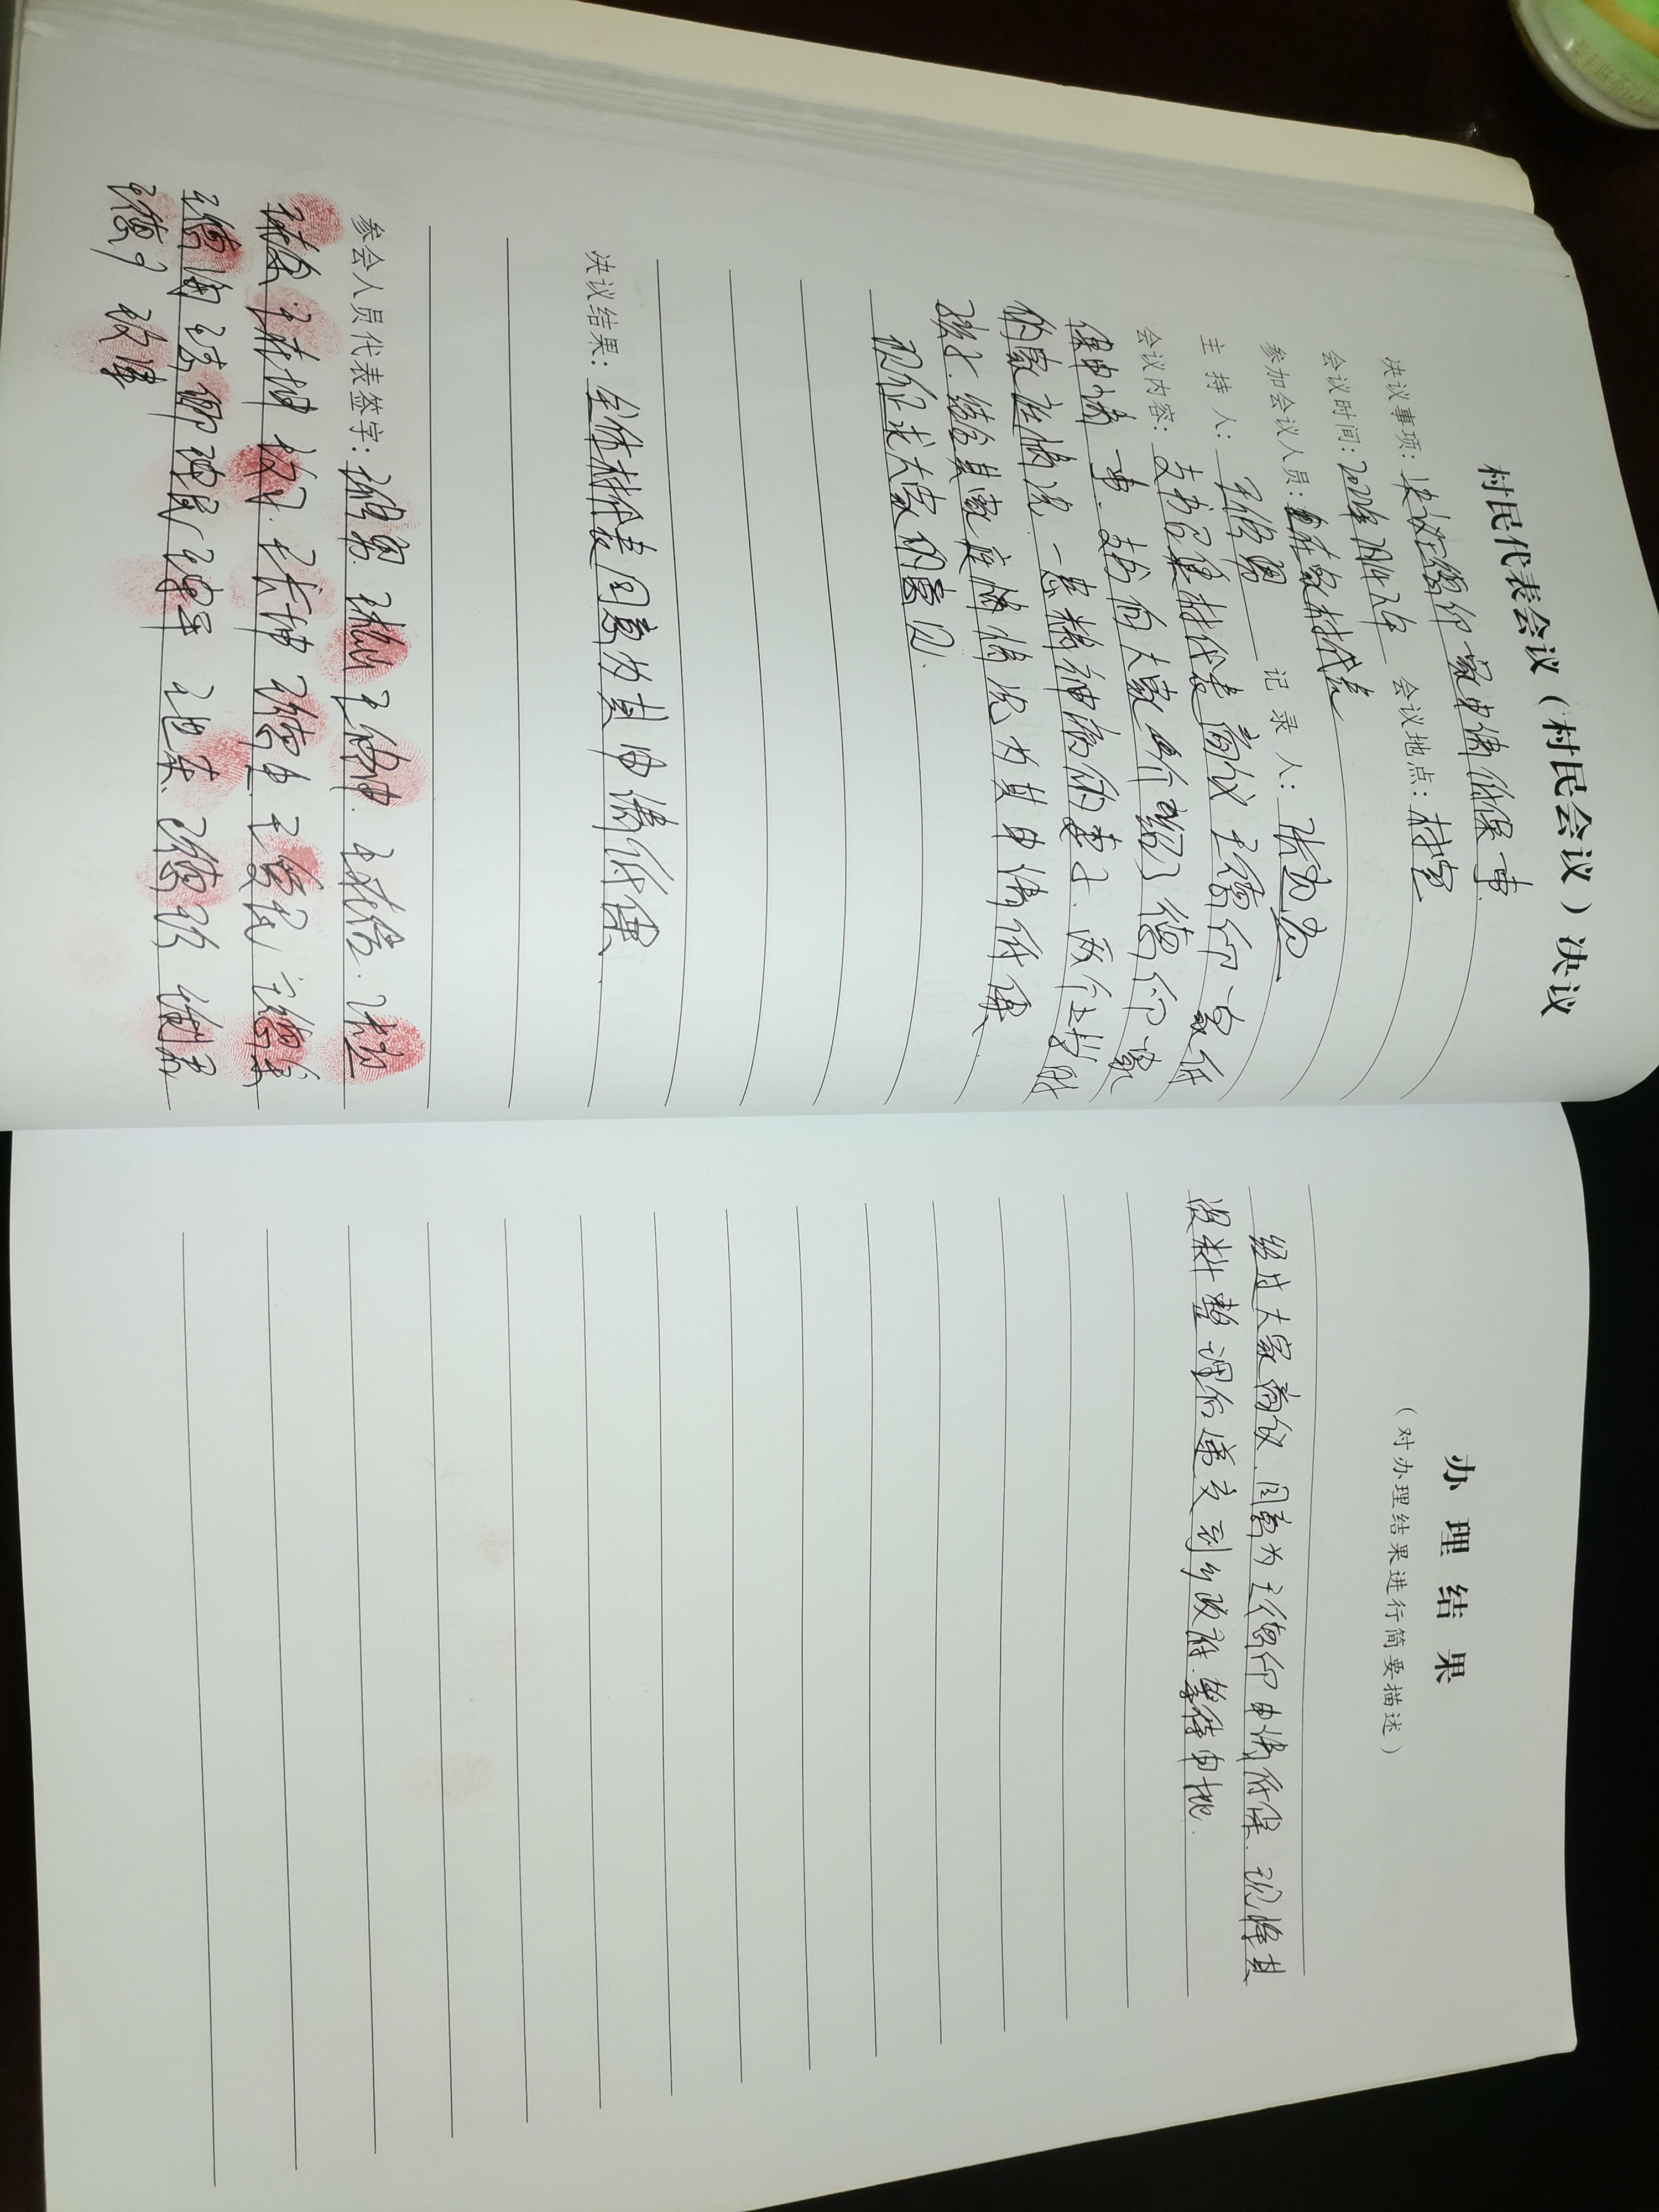 村民代表会议（村民会议）决议
决议事项：决议王德仰一家申请低保一事.
会议时间：2022年7月14下午 会议地点：村室
参加会议人员：全在家村代表
主持人：王修男 记录人：张
会议内容：支书召集村代表商议王德仰一家低
保申请一事.支书向大家介绍了德仰一家
的家庭情况.一患精神病的妻子.两个上学的
孩子.结合其家庭情况为其申请低保.
现征求大家的意见.
决议结果：全体村代表同意为其申请低保.
参会人员代表签字：王修男. 王修坤. 王在信.
王在坤 王长坤 王爱民
王德海 王志卿 王世东. 王德珍
办理结果
（对办理结果进行简要描述）
经过大家商议.同意为王德仰申请低保.现将其
资料整理后递交到乡政府.等待审批.